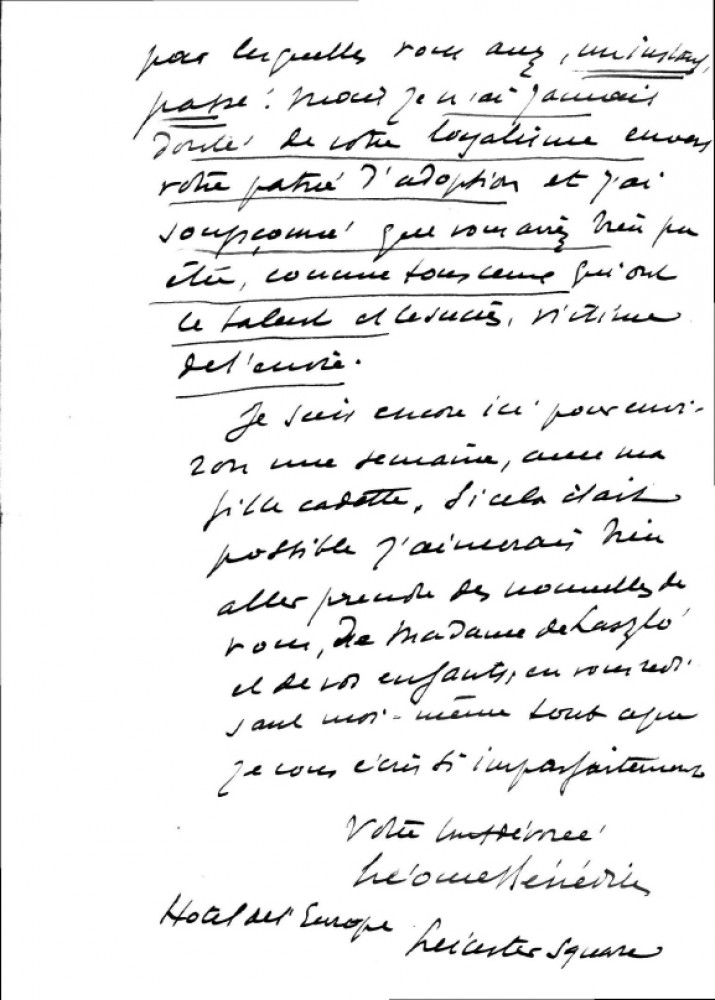 par lesquelles vous avez, un instant,
passé! mais je n'ai jamais
douté de votre loyalisme envers
votre patrie d'adoption et j'ai
soupçonné que vous aviez bien pu
être, comme tous ceux qui ont
le talent et le succès, victime
de l'envie.
Je suis encore ici pour envi-
ron une semaine, avec ma
fille cadette. Si cela était
possible j'aimerais bien
aller prendre des nouvelles de
vous, de Madame de László
et de vos enfants, en vous redi-
sant moi-même tout ce que
je vous écris si imparfaitement
Votre dévoué
Léonce Bénédite
Hotel de l'Europe
Leicester Square